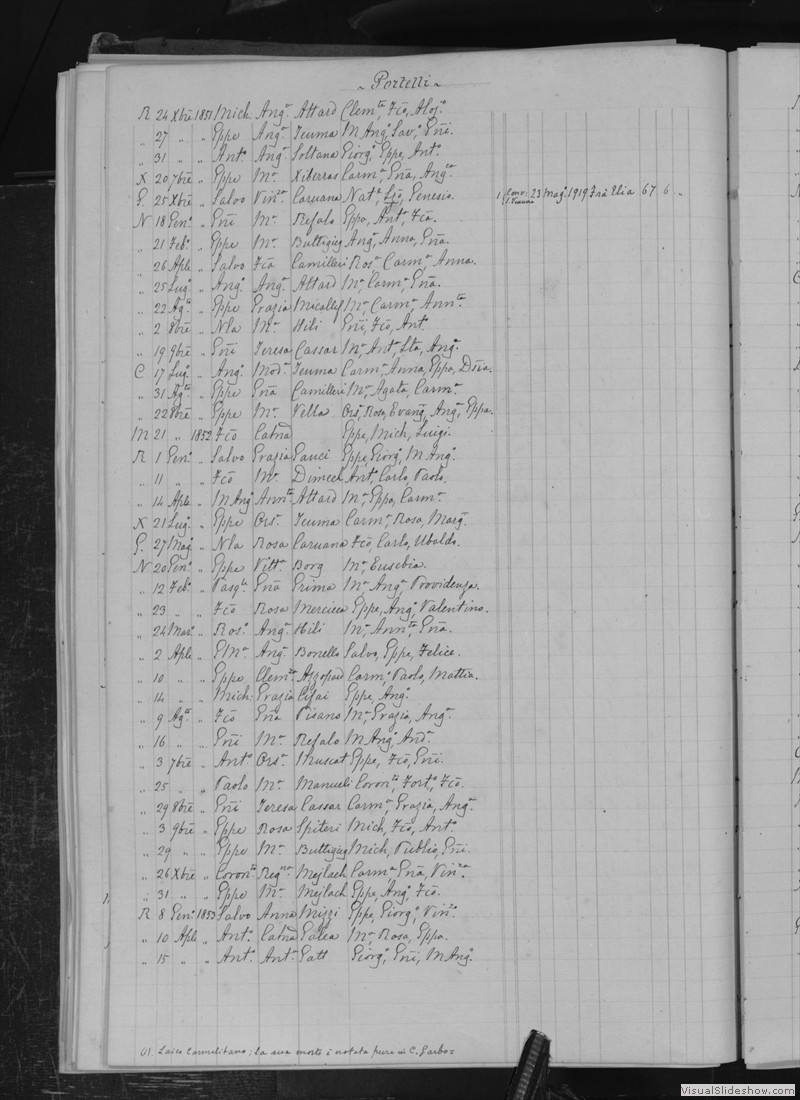 ~ Portelli ~
R 24 Xbre 1851 Mich. Angª Attard Clemtª, Fcõ, Aloyº.
„ 27 „ „ Gppe Angª Teuma M Angº, Savº, Gñi.
„ 31 „ „ Antº Angª Soltana Giorgº, Gppe, Antº
X 20 7bre „ Gppe Mª Xiberras Carmª, Gña, Angcª
G. 25 Xbre „ Salvo Vinzª Caruana Natª, Genesio. 1 Conv: 23 Magº 1919 Frà Elia 67 6 „
N 18 Genº „ Gñi Mª Refalo Gppa, Antª, Fcã.
„ 21 Febº „ Gppe Mª Buttigieg Angª, Anna, Gña.
„ 26 Aple „ Salvo Fcã Camilleri Rosª, Carmª, Anna.
„ 25 Lugº „ Angº Angª Attard Mª, Carmª, Gña.
„ 22 Agtº „ Gppe Grazia Micallef Mª, Carmª, Anntª
„ 2 8bre „ Nla Mª Hili Gñi, Fcõ, Ant.
„ 19 9bre „ Gñi Teresa Cassar Mª, Antª, Lta, Angª.
C 17 Lugº „ Angº Modª Teuma Carmª, Anna, Gppa,
„ 31 Agtº „ Gppe Gña Camilleri Mª, Agata, Carmª
„ 22 8bre „ Gppe Mª Vella Orsª, Rosa, Evangª, Angª, Gppa.
M 21 „ 1852 Fcõ Catna Gppe, Mich, Luigi.
R 1 Genº „ Salvo Grazia Gauci Gppe, Giorgº, M Angº.
„ 11 „ „ Fcõ Mª Dimech Antº, Carlo, Paolo.
„ 14 Aple „ M Angº Anntª Attard Mª, Gppa, Carmª
X 21 Lugº „ Gppe Orsª Teuma Carmª, Rosa, Margª.
G. 27 Magº „ Nla Rosa Caruana Fcõ, Carlo, Ubaldo.
N 20 Genº „ Gppe Vittª Borg Mª, Eusebia.
„ 12 Febº „ Pasqle Gña Grima Mª, Angª, Providenza.
„ 23 „ „ Fcõ Rosa Mercieca Gppe, Angº, Valentino.
„ 24 Marº „ Rosº Angª Hili Mª, Anntª, Gña.
„ 2 Aple „ Angª Bonello Salvo, Gppe, Felice.
„ 10 „ „ Gppe Clemtª Azzopard Carmº, Paolo, Mattia.
„ 14 „ „ Mich. Grazia Cefai Gppe, Angº.
„ 9 Agtº „ Fcõ Gña Pisano Mª, Grazia, Angª.
„ 16 „ „ Gñi Mª Refalo M Angº, Andª.
„ 3 7bre „ Antº Orsª Muscat Gppe, Fcõ, Gñi.
„ 25 „ „ Paolo Mª Manueli Corontº, Fortº, Fcõ.
„ 29 8bre „ Gñi Teresa Cassar Carmª, Grazia, Angª.
„ 3 9bre „ Gppe Rosa Spiteri Mich, Fcõ, Antº
„ 29 „ „ Gppe Mª Buttigieg Mich, Publio, Gñi.
„ 26 Xbre „ Corontº Regnª Mejlach Carmª, Gña, Vinzª
„ 31 „ „ Gppe Mª Mejlach Gppe, Angº, Fcõ.
R 8 Genº 1853 Salvo Anna Mizzi Gppe, Giorgº, Vinº.
„ 10 Aple „ Antº Catna Galea Mª, Rosa, Gppa.
„ 15 „ „ Antº Antª Gatt Giorgº, Gñi, M Angº.
(1. Laico Carmelitano; la sua morte è notata pure al C. Garbo =
VisualSlideshow.com